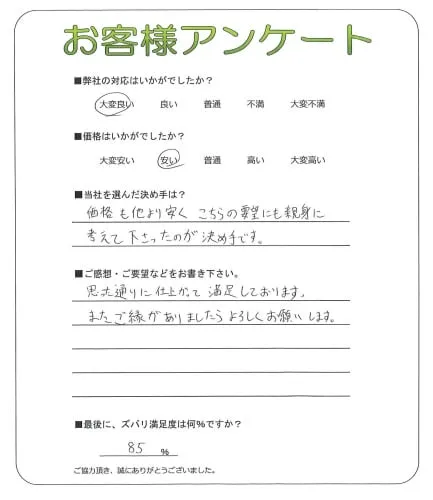 お客様アンケート
■弊社の対応はいかがでしたか？
大変良い 良い 普通 不満 大変不満
■価格はいかがでしたか？
大変安い 安い 普通 高い 大変高い
■当社を選んだ決め手は？
価格も他より安く こちらの要望にも親身に
考えて下さったのが決め手です。
■ご感想・ご要望などをお書き下さい。
思った通りに仕上がって満足しております。
またご縁がありましたらよろしくお願いします。
■最後に、ズバリ満足度は何％ですか？
85 ％
ご協力頂き、誠にありがとうございました。